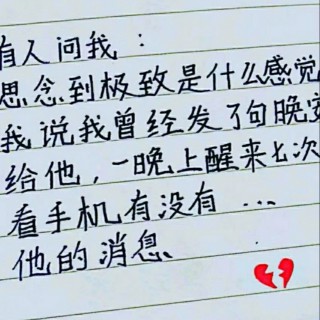 有人问我：
思念到极致是什么感觉
我说我曾经发了句晚安
给他，一晚上醒来七次
看手机有没有...
他的消息